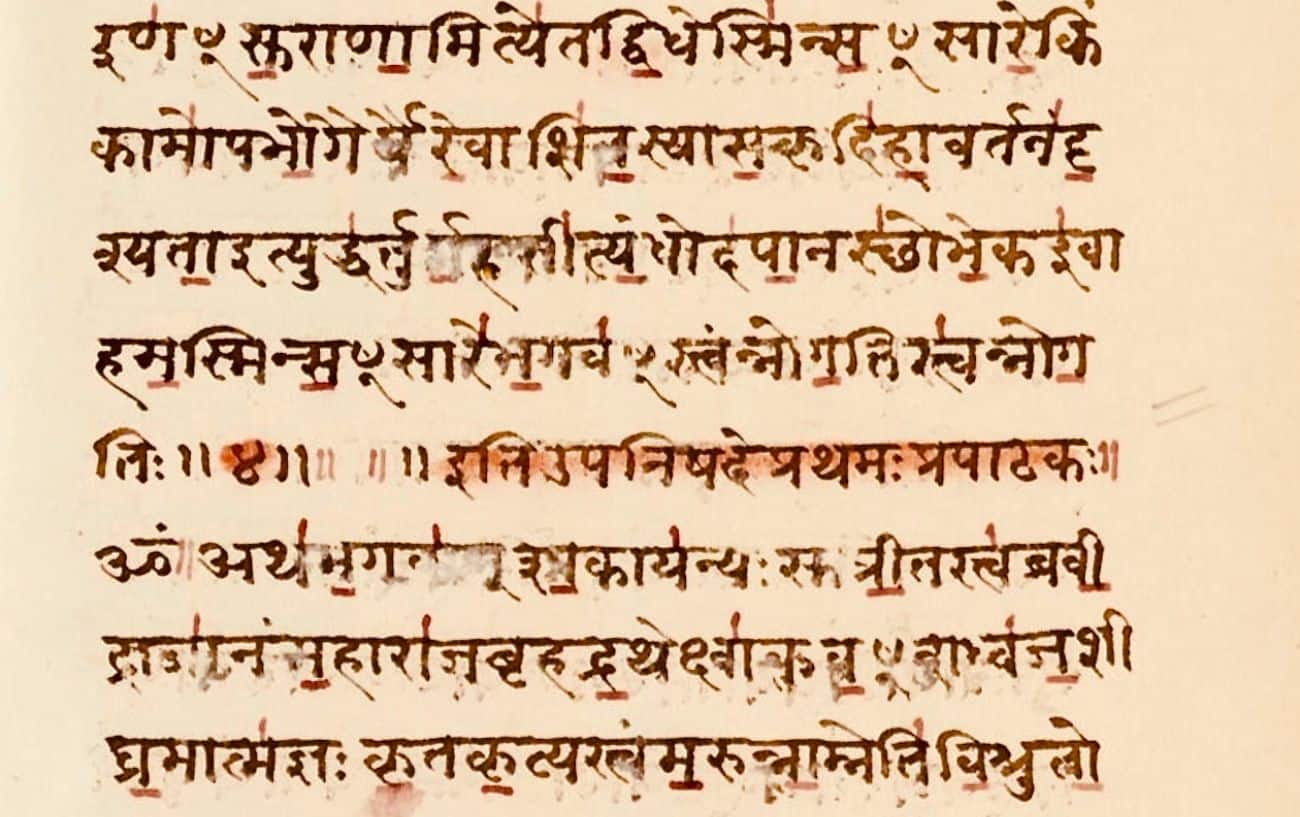 इणꣳस्तराणामित्येतद्विधेस्मिन्सꣳसारेकिं
कामोपभोगैर्यैरेवाशितस्यासकृदिहावर्तनंदृ
श्यताइत्युद्धर्तुमर्हसीत्यंधोदपानस्छोभेकइवा
हमस्मिन्सꣳसारेभगवꣳस्त्वंन्नोगतिस्त्वन्नोग
तिः॥४॥ ॥ ॥ ॥इतिउपनिषदेप्रथमःप्रपाठकः॥
ॐ॥अथभगवाञ्शाकायन्यःसुप्रीतस्त्वब्रवी
द्राजानंमहाराजबृहद्रथेक्ष्वाकुवꣳशध्वजशी
घ्रमात्मज्ञःकृतकृत्यस्त्वंमरुन्नाम्नेतिविश्रुतो